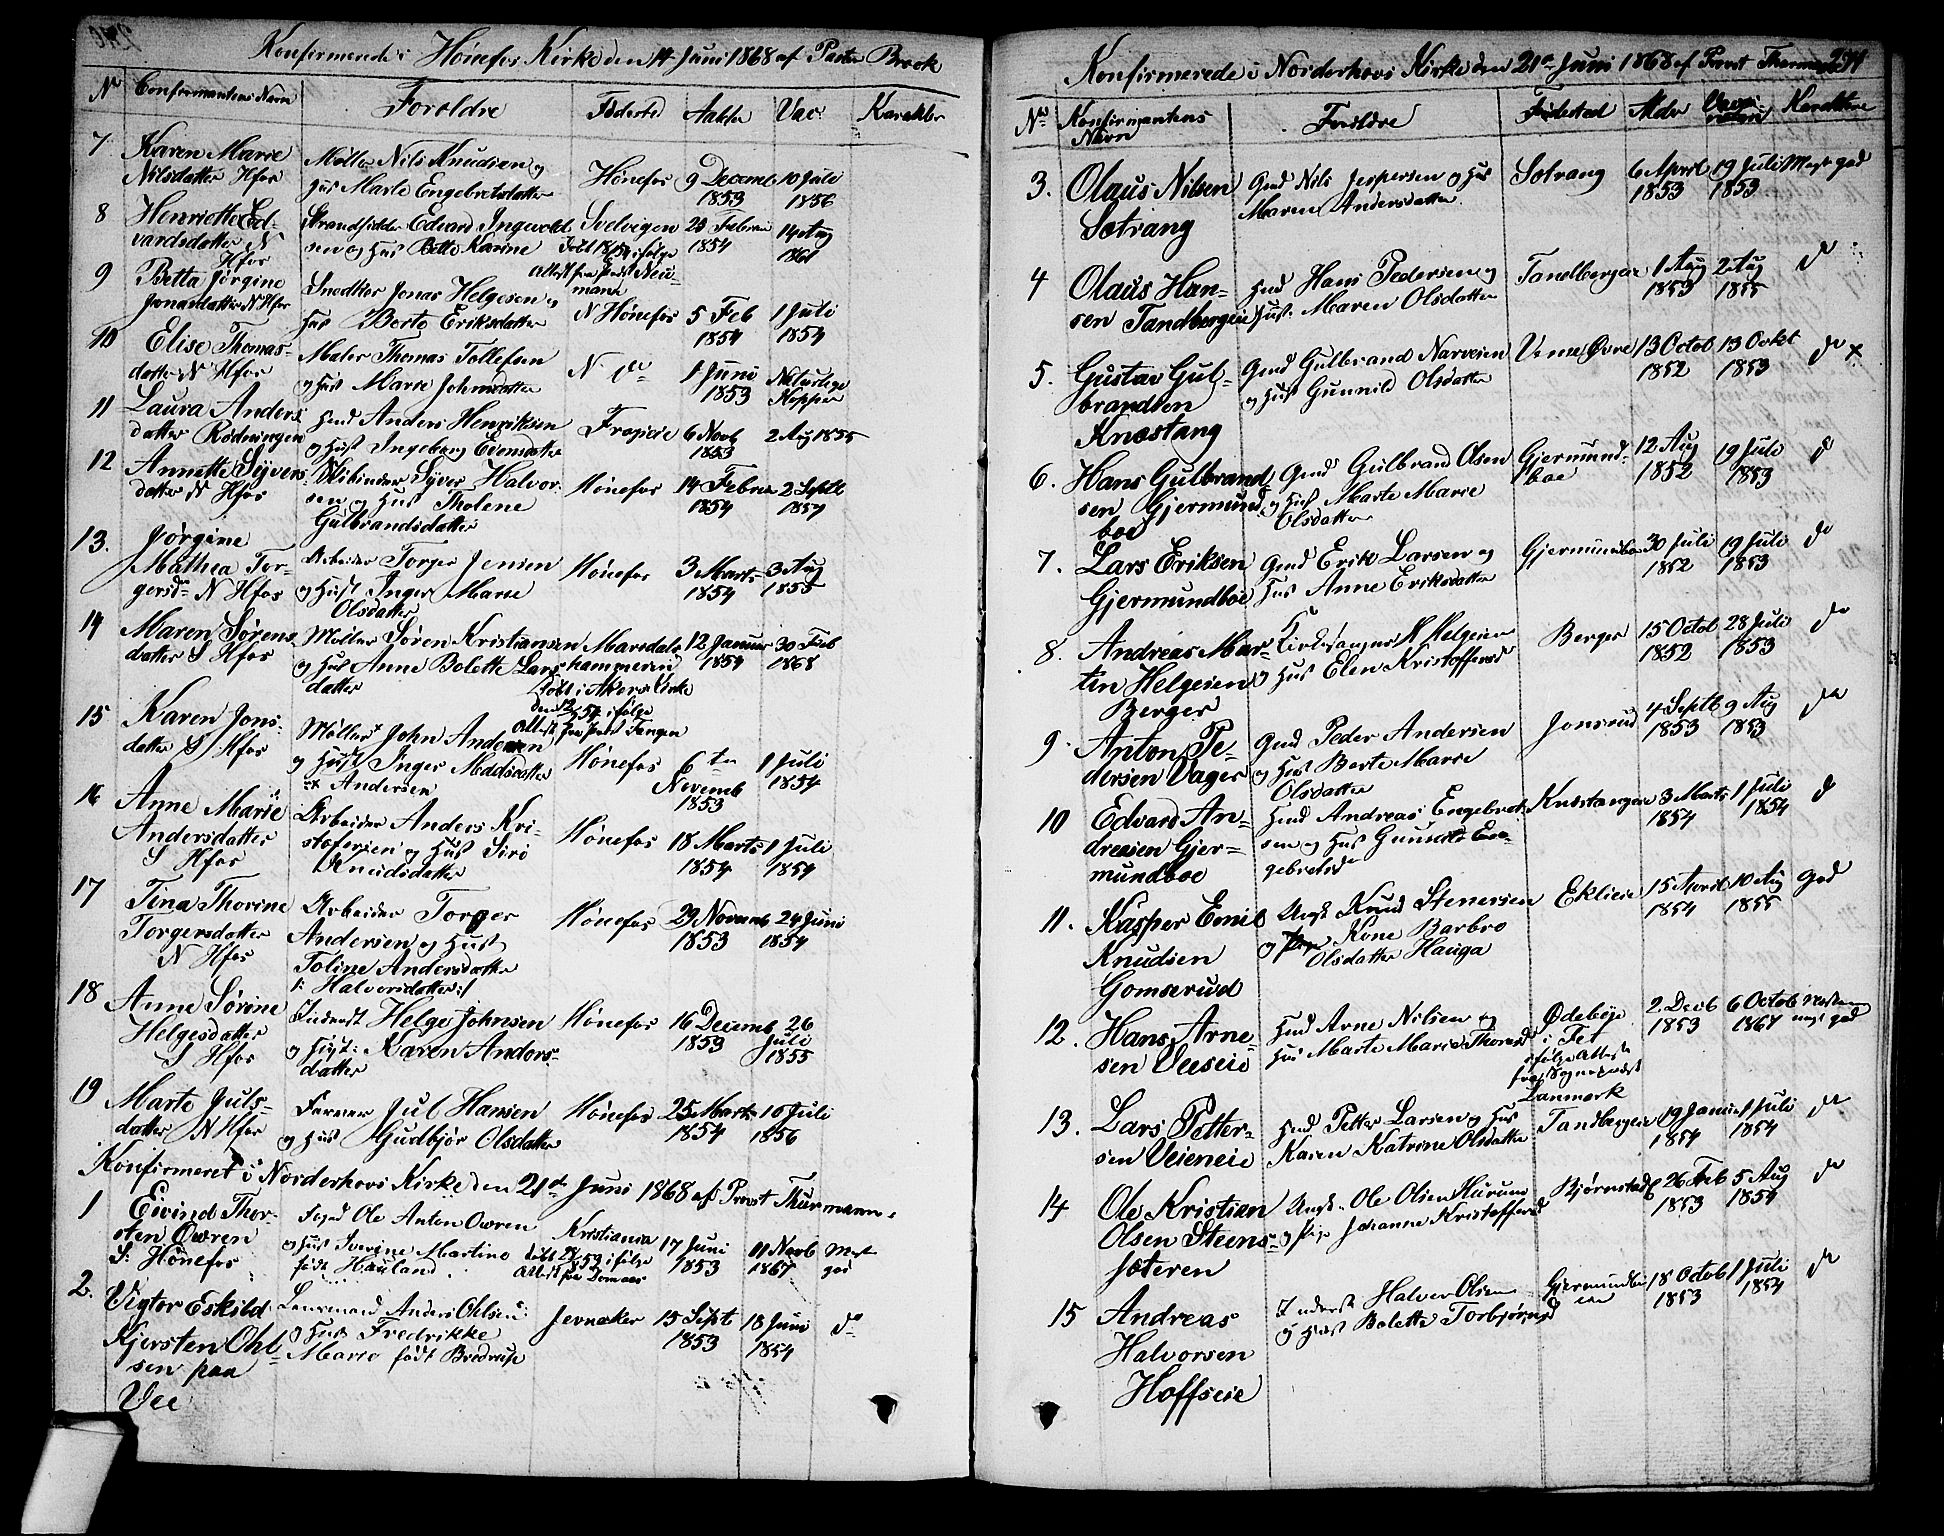 Konfirmerede i Hönefos Kirke den 14 Juni 1868 af Pastor Brock
No Confirmantens Navn Foroldre Födested Aalder Vac: Karakter
7 Karen Marie Nilsdatter Hfos
Möller Nils Knudsen og
Hus Marte Engebretsdatter
Hönefos 9 Decemb 1853 10 Juli 1856
8 Henriette Edvardsdatter N Hfos
Strandsidder Edvard Ingvold
sen og Hus Bette Karine
Svelvigen 23 Februar 1854 14 Aug 1861
9 Betta Jørgine Jonasdatter N Hfos
Snedker Jonas Helgesen og
Hus Berte Eriksdatter
N Hönefos 5 Feb 1854 1 Juli 1854
10 Elise Thomasdatter N Hfos
Maler Thomas Tollefsen
og Hus Marie Johnsdatter
N do 1 Juni 1853 Naturlige Kopper
11 Laura Andersdatter Rödningen
Hmd Anders Henriksen
og Hust Ingeborg Evensdatter
6 Novb 1853 2 Aug 1855
12 Annette Syversdatter N Hfos
Syver Halvor
sen og Hus Tholene
Gulbrandsdatter
Hönefos 14 Februar 1854 2 Septb 1857
13. Jørgine
Mathea Tor-
gersdr N Hfos
Arbeider Torger Jensen
og Hust Inger Marie
Olsdatter
Hönefos 3 Marts 1854 3 Aug 1855
14 Maren Sörens
datter S Hfos
Möller Sören Kristiansen
og Hus Anne Bolette Lars
datter
Maredals
hammeren
12 Januar 1854 30 Feb 1868
15 Karen Jons-
datter S Hfos
Möller John Andersen
og Hust Inger Madsdatter
Andersen
Hönefos 6te Novemb 1853 1 Juli 1854
16 Anne Marie
Andersdatter
S Hfos
Arbeider Anders Kri-
stofersen og Hus Siri
Knudsdatter
Hönefos 18 Marts 1854 1 Juli 1854
17 Tina Thorine
Torgersdatter
N Hfos
Arbeider Torger
Andersen og Hust
Toline Andersdatter
Halvorsdatter
Hönefos 29 Novemb 1853 24 Juni 1854
18 Anne Sörine
Helgesdatter
S Hfos
Inderst Helge Johnsen
og Hust: Karen Anders-
datter
Hönefos 16 Decemb 1853 26 Juli 1855
19 Marte Juls-
datter N Hfos
Farver Jul Hansen
og Hus Gudbjör Olsdatter
Hönefos 25 Marts 1854 10 Juli 1856
Konfirmeret i Norderhovs Kirke den 21de Juni 1868 af Provst Thurmann.
1 Eivind Thor-
sten Owren
S: Hönefos
Foged Ole Anton Owren
og Hus Severine Martine
født Hauland
Kristiania
17 Juni 1853 11 Novb 1867 Meget god
2. Vigtor Eskild
Kjersten Ohl-
sen paa
Vee
Lensmand Anders Ohlsen
og Hus Fredrikke
Marie født Bredrup
Jevnaker 15 Sept 1853 18 Juni 1854 do
Konfirmerede i Norderhovs Kirke den 21de Juni 1868 af Provst Thurmann 241
No Konfirmantens Navn Foreldre Fødested Alder Karaktere
3. Olaus Nilsen
Sætrang
Gmd Nils Jespersen og Hus
Maren Andersdatter
Sætrang 6 April 1853 19 Juli 1853 Meget god
4 Olaus Han-
sen Tandbergeie
Hmd Hans Pedersen og
Hust. Maren Olsdatter
Tandbergeie 1 Aug 1853 2 Aug 1855 do
5. Gustav Gul-
brandsen
Knæstang
Gmd Gulbrand Narvesen
og Hust Gunnild Olsdatter
Veme Øvre 13 Octob 1852 13 Ockt 1853 do x
6. Hans Gulbrand-
sen Gjermund
boe
Gmd Gulbrand Olsen
og Hus Marte Marie
Olsdatter
Gjermund-
boe 12 Aug 1852 19 Juli 1853 do
7. Lars Eriksen
Gjermundboe
Gmd Erik Larsen og
Hus Anne Eriksdatter
Gjermundboe 30 Juli 1852 19 Juli 1853 do
8. Andreas Mar-
tin Helgesen
Berger
Kirkesanger H Helgesen
og Hus Elen Kristoffersd
Berger 15 Octob 1852 28 Juli 1853 do
9. Anton Pe-
dersen Vager
Gmd Peder Andersen
og Hus Berte Marie
Olsdatter
Jonsrud 4 Septb 1853 9 Aug 1853 do
10 Edvard An-
dreasen Gjer-
mundboe
Hmd Andreas Engebret-
sen og Hus Gunild En-
gebretsd
Knæstangeie 3 Marts 1854 1 Juli 1854 do
11. Kasper Emil
Knudsen
Gomserud
Ungk Knud Stenersen
og Kone Barbro
Olsdatter Hauga
Eklieie 15 April 1854 10 Aug 1855 god
12. Hans Arne-
sen Veseie
Hmd Arne Nilsen og
Hus Marte Marie Thoresd
Ødebøje
i Fet
ifølge Attest
fra Sognepræst
Lanmark
2 Decb 1853 6 Octob 1867 næsten meget god
13. Lars Petter-
sen Veieneie
Hmd Petter Larsen og Hus
Karen Katrine Olsdatter
Tandbergeie 19 Januar 1854 1 Juli 1854 do
14 Ole Kristian
Olsen Steens-
sæteren
Ungk. Ole Olsen Hurum
og Pige Johanne Kristoffersd
Bjørnstad 26 Feb 1853 5 Aug 1854 do
15 Andreas
Halvorsen
Hoffseie
Inderst Halvor Olsen
og Hust Bolette Torbjørnsd
Gjermundbo
eie 18 Octob 1853 1 Juli 1854 do